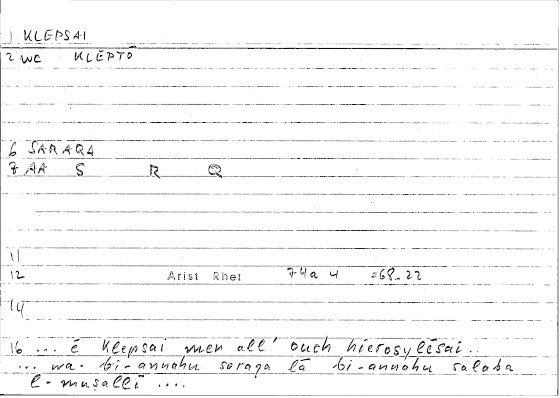 1 KLEPSAI
2 WC KLEPTŌ
6 SARAQA
7 AA S R Q
11
12 Arist Rhet 74a 4 =68.22
14
16 ... ē klepsai men all' ouch hierosylēsai..
... wa- bi-annahu saraqa lā bi-annahu salaba
l-muṣallī ....